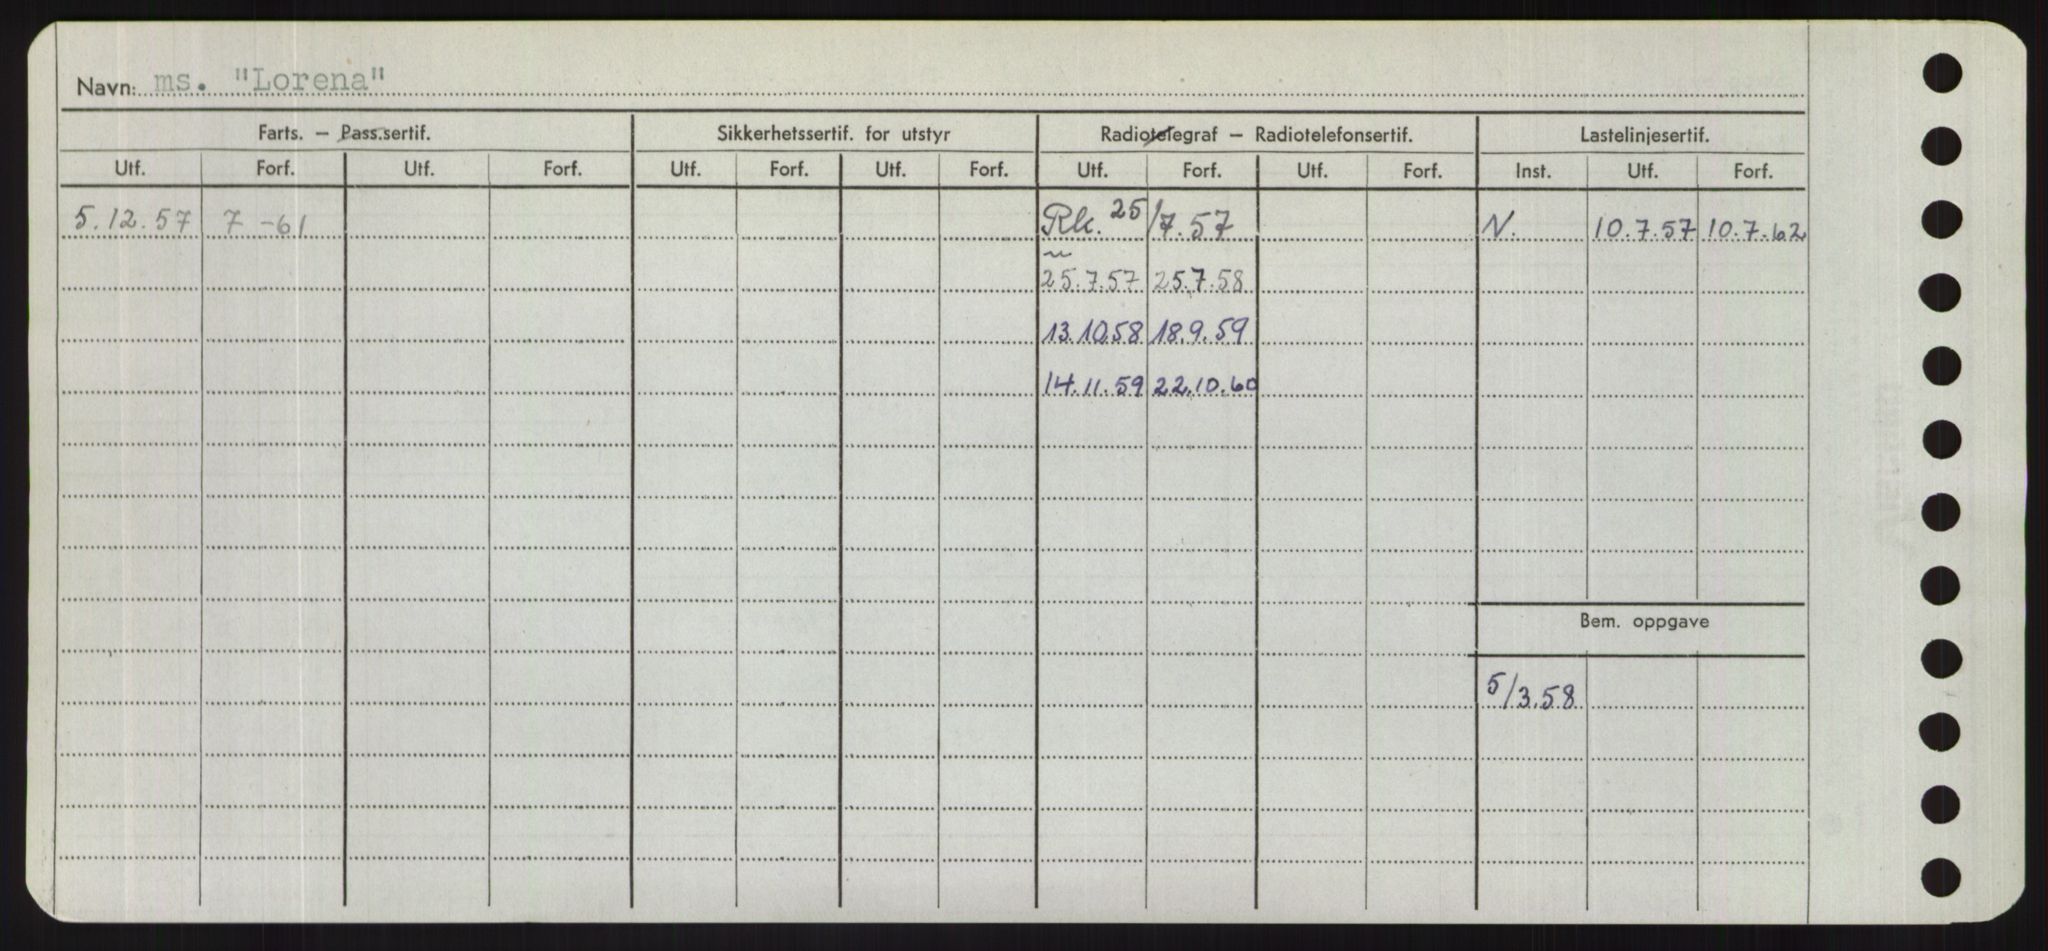 Navn: ms. "Lorena"
Farts. — Pass.sertif. Sikkerhetssertif. for utstyr Radiotelegraf — Radiotelefonsertif. Lastelinjesertif.
Utf. Forf. Utf. Forf. Utf. Forf. Utf. Forf. Utf. Forf. Utf. Forf. Inst. Utf. Forf.
5.12.57 7 -61 Rk. 25/7.57 N. 10.7.57 10.7.62
25.7.57 25.7.58
13.10.58 18.9.59
14.11.59 22.10.60
Bem. oppgave
5/3.58